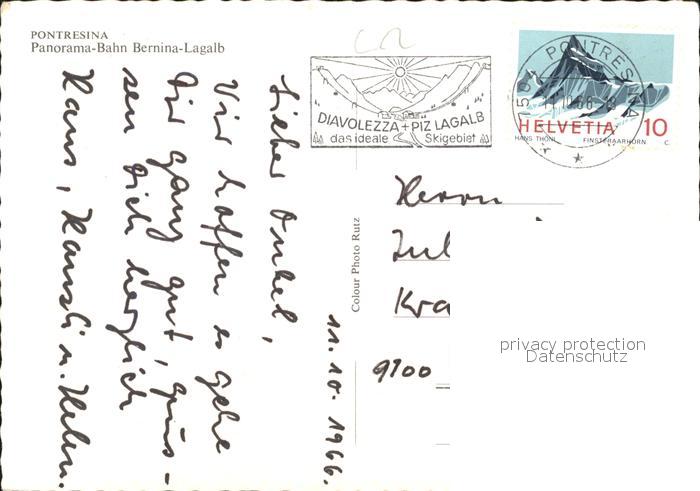 PONTRESINA
Panorama-Bahn Bernina-Lagalb
DIAVOLEZZA + PIZ LAGALB
das ideale Skigebiet
PONTRESINA
HELVETIA 10
HANS THÖNI FINSTERAARHORN C.
Lieber Onkel,
Wir hoffen es gehe
Dir ganz gut, grüs-
sen Dich herzlich
Hans, Hansli u. Helen.
11.10.1966.
Colour Photo Rutz
Herrn
Jul
Kra
9100
privacy protection
Datenschutz